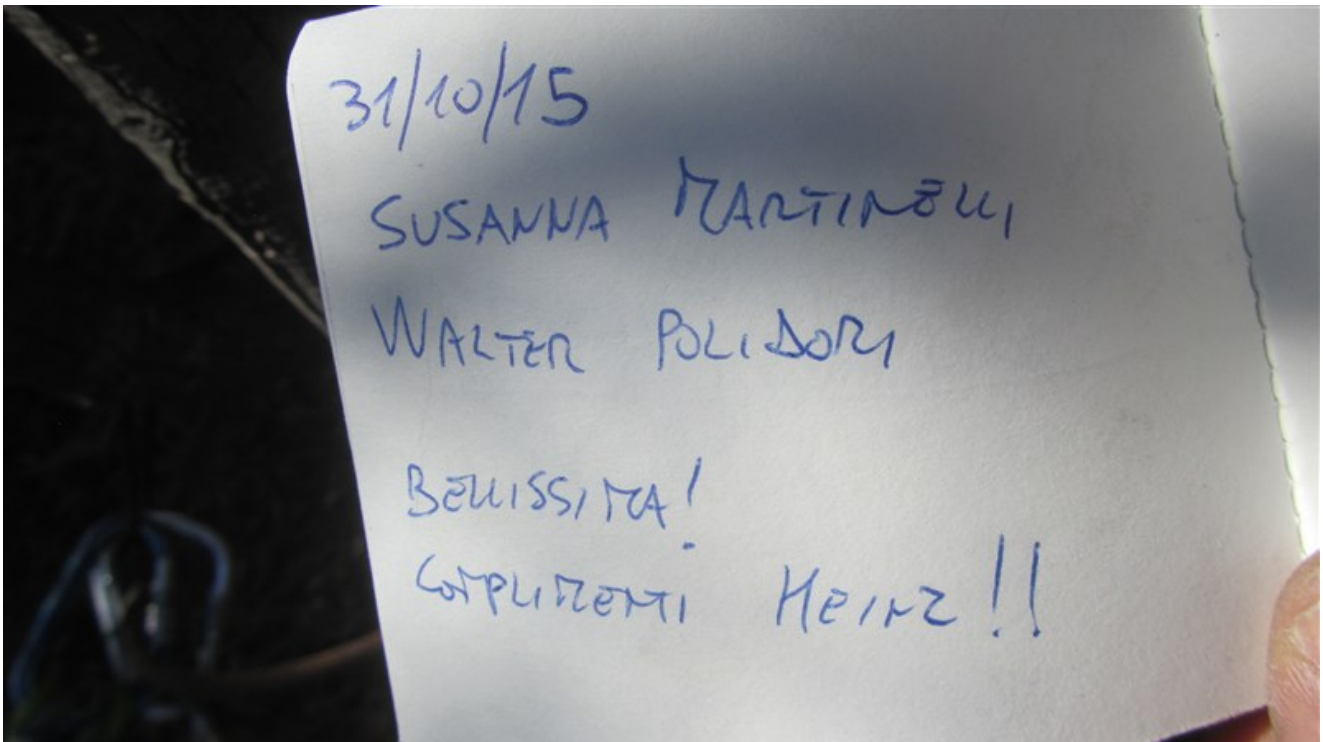 31/10/15
SUSANNA MARTINELLI
WALTER POLIDORI
BELLISSIMA!
COMPLIMENTI HEINZ!!